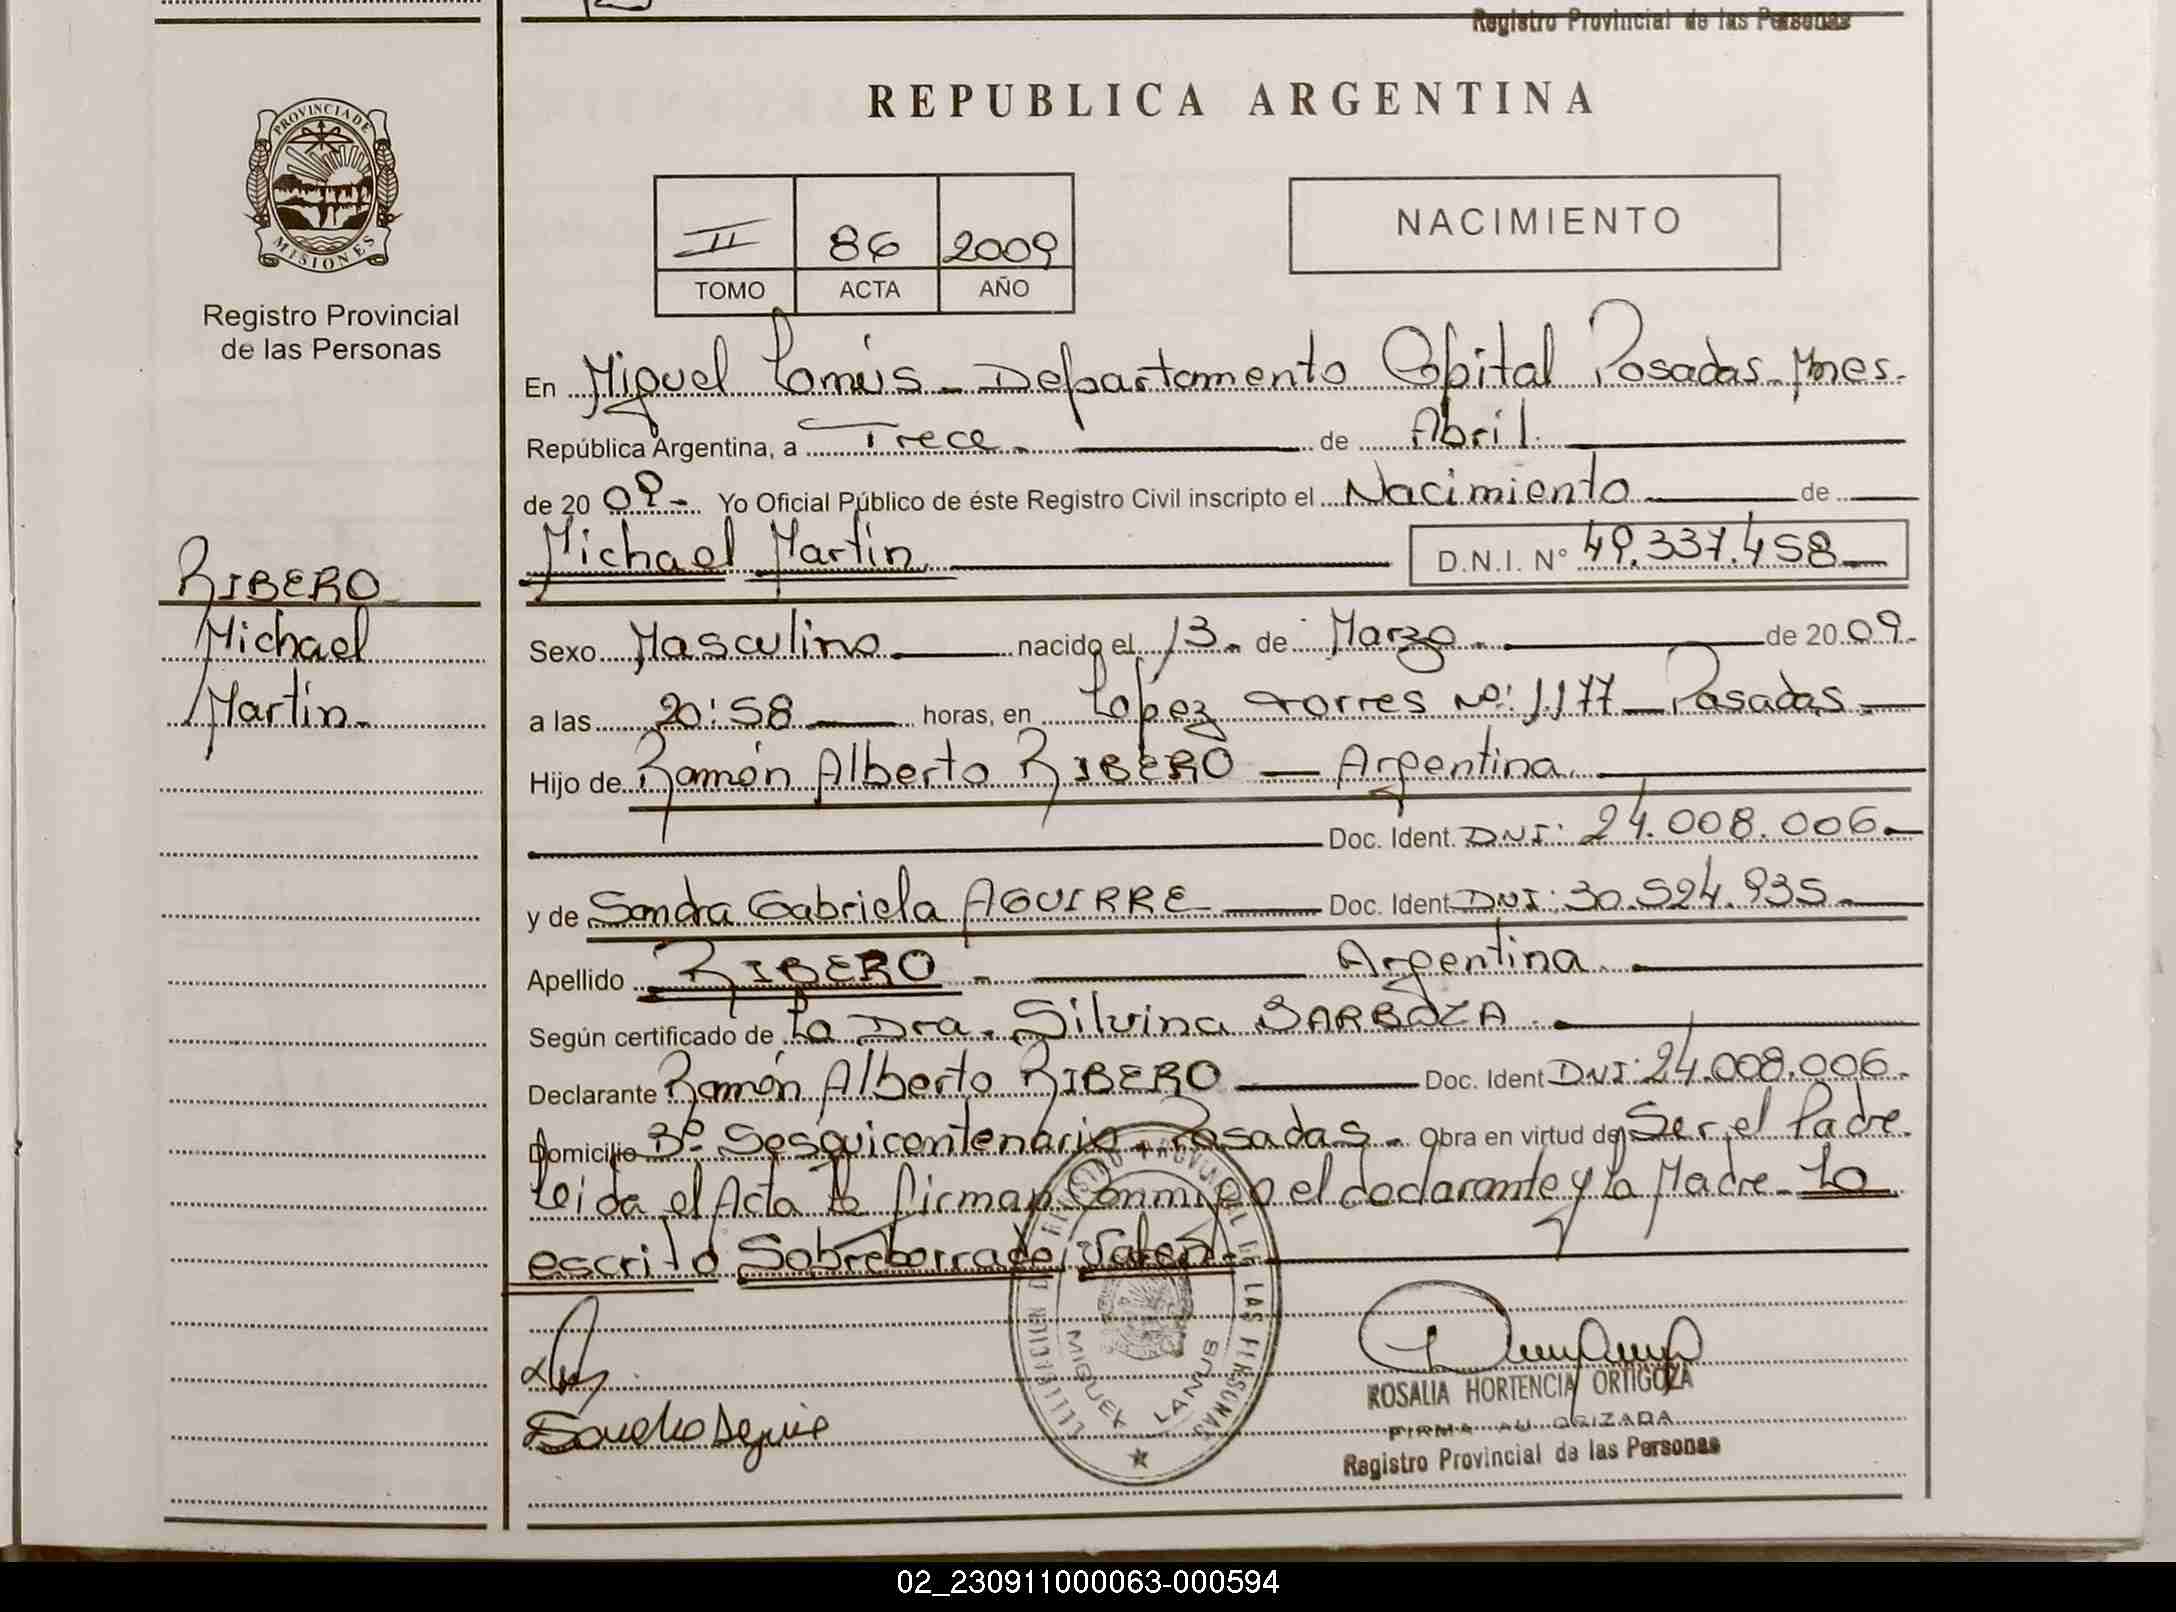 Registro Provincial de las Personas
REPUBLICA ARGENTINA
PROVINCIA DE
MISIONES
Registro Provincial
de las Personas
II 86 2009
TOMO ACTA AÑO
NACIMIENTO
En Miguel Lanús - Departamento Capital Posadas - Mnes.
República Argentina, a Trece de Abril
de 2009 - Yo Oficial Público de éste Registro Civil inscripto el Nacimiento de
Michael Martin D.N.I. Nº 49.337.458
RIBERO
Michael
Martin
Sexo Masculino nacido el 13 de Marzo de 2009
a las 20:58 horas, en López Torres Nº: 1177 - Posadas
Hijo de Ramón Alberto RIBERO - Argentina
Doc. Ident. DNI: 24.008.006
y de Sandra Gabriela AGUIRRE Doc. Ident DNI: 30.524.935
Apellido RIBERO - Argentina
Según certificado de La Dra. Silvina BARBOZA
Declarante Ramón Alberto RIBERO Doc. Ident DNI: 24.008.006
Domicilio Bº Sesquicentenario - Posadas - Obra en virtud de Ser el Padre
Leida el Acta la firman Conmigo el declarante y la Madre - Lo
escrito Sobreborrado, Valen
REGISTRO PROVINCIAL DE LAS PERSONAS
MIGUEL LANUS
ROSALIA HORTENCIA ORTIGOZA
FIRMA AUTORIZADA
Registro Provincial de las Personas
02_230911000063-000594